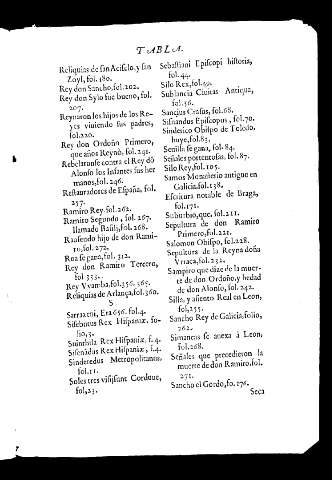 TABLA.
Reliquias de san Acisclo, y san
Zoyl, fol.180.
Rey don Sancho, fol.202.
Rey don Sylo fue bueno, fol.
207.
Reynaron los hijos de los Re-
yes viuiendo sus padres,
fol.220.
Rey don Ordoño Primero,
que años Reynò, 241.
Rebelaronse contra el Rey dõ
Alonso los Infantes sus her
manos, fol.246.
Restauradores de España, fol.
257.
Ramiro Rey. fol.262.
Ramiro Segundo, fol. 267.
llamado Basilis, fol.268.
Rausendo hijo de don Rami-
ro, fol.272.
Roa se gano, fol. 312.
Rey don Ramiro Tercero,
fol 355.
Rey Vvamba, fol.356. 365.
Reliquias de Arlança, fol.360.
S
Sarrazeni, Era 656. fol.4.
Sisebutus Rex Hispaniæ, fo-
lio, 3.
Suinthila Rex Hispaniæ, f.4.
Sisenãdus Rex Hispaniæ, f.4.
Sinderedus Metropolitanus,
fol.11.
Soles tres visi sunt Cordoue,
fol, 23.
Sebastiani Episcopi historia,
fol.44.
Silo Rex, fol.49.
Sublancia Ciuitas Antiqua,
fol.56.
Sanctius Crasus, fol.68.
Sisnandus Episcopus, fol.70.
Sinderico Obispo de Toledo
huye, fol.83.
Seuilla se gana, fol. 84.
Señales portentosas, fol. 87.
Silo Rey, fol.105.
Samos Monasterio antiguo en
Galicia, fol.138.
Escritura notable de Braga,
fol.171.
Suburbio, que, fol.211.
Sepultura de don Ramiro
Primero, fol.221.
Salomon Obispo, fol.228.
Sepultura de la Reyna doña
Vrraca, fol.232.
Sampiro que dize de la muer-
te de don Ordoño, y hedad
de don Alonso, fol. 242.
Silla, y asiento Real en Leon,
fol, 255.
Sancho Rey de Galicia, folio,
262.
Simancas se anexa à Leon,
fol.268.
Señales que precedieron la
muerte de don Ramiro, fol.
271.
Sancho el Gordo, fo. 276.
Seca